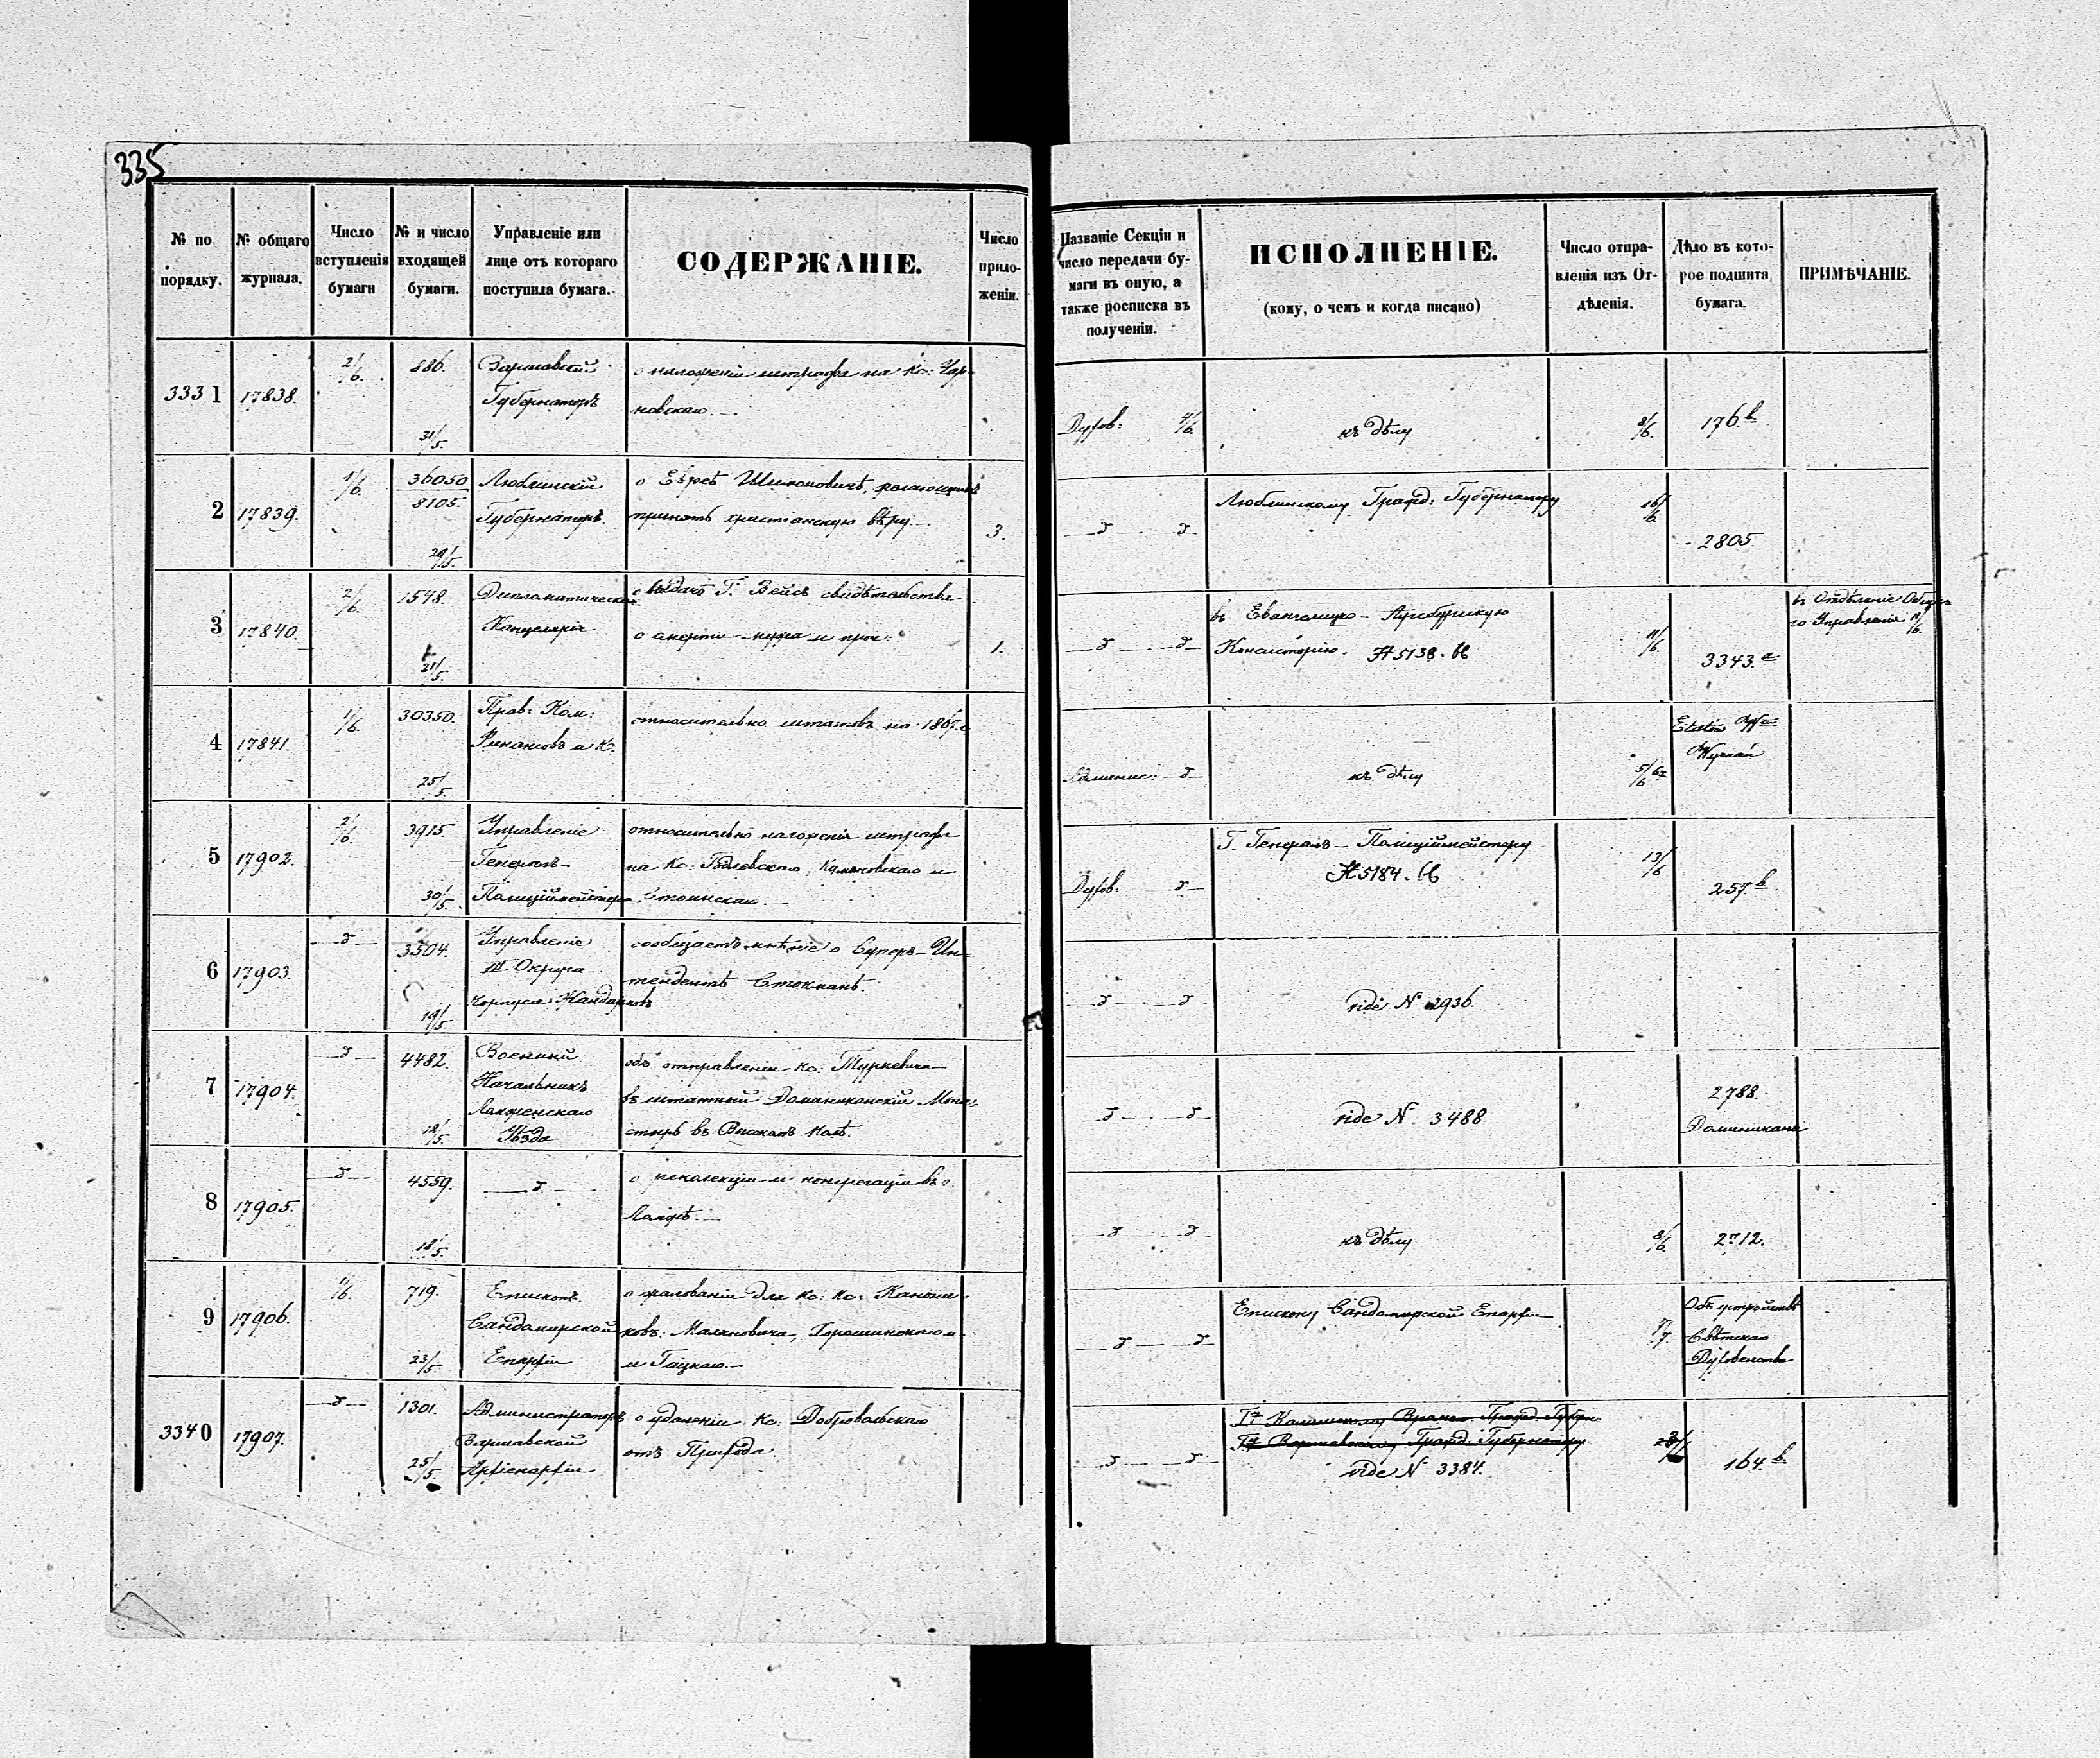 335
№ по порядку.
№ общаго журнала.
Число вступленія бумаги
№ и число входящей бумаги.
Управленіе или лице отъ котораго поступила бумага.
СОДЕРЖАНІЕ.
Число приложеніи.
Названіе Секціи и число передачи бумаги въ оную, а также росписка въ полученіи.
ИСПОЛНЕНІЕ.
(кому, о чемъ и когда писано)
Число отправленія изъ Отдѣленія.
Дѣло въ которое подшита бумага.
ПРИМѢЧАНІЕ.
3331 17838. 2/6. 886. 31/5.
Варшавскій
Губернаторъ
о наложеніи штрафа на Кс: Чар-
новскаго.
Духов: 4/6
къ дѣлу
8/6. 176.в
2 17839. 1/6. 36050
8105. 29/5
Люблинскій
Губернаторъ
о Евреѣ Шимоновичѣ, желающемъ
принять христіанскую вѣру.
3.
Люблинскому Гражд: Губернатору
16/6 2805.
3 17840. 2/6. 1548. 21/5.
Дипломатическая
Канцелярія
о выдачѣ Г. Вейсъ свидѣтельства
о смерти мужа и проч:
1.
въ Евангелицко-Аугсбургскую
Консисторію. № 5138.
11/6. 3343.
въ Отдѣленіе Обща-
го Управленія 11/6.
4 17841. 1/6. 30350. 25/5.
Прав: Ком:
Финансовъ и К:
относительно штатовъ на 1867. г
Админис:
къ дѣлу
5/6 67
5 17902. 2/6. 3915. 30/5.
Управленіе
Генералъ-
Полиціймейстера
относительно наложенія штрафа
на Кс: и
Духов:
Г. Генералъ-Полиціймейстеру
№ 5184.
13/6 257.в
6 17903. 3304. 19/5
Управленіе
III Округа
корпуса Жандармовъ
сообщаетъ мнѣніе о Суперъ-Ин-
тендентѣ Стокманѣ.
vide N 2936.
7 17904. 4482. 18/5.
Военный
Начальникъ
Уѣзда
объ отправленіи кс: Туркевича
въ штатный Доминиканскій Мона-
стырь въ Высокомъ Колѣ.
vide N. 3488
2788.
Доминикане
8 17905. 4559. 18/5.
о и конгрегаціи въ
къ дѣлу
8/6. 2712.
9 17906. 1/6. 719. 23/5.
Епископъ
Сандомирской
Епархіи
о жалованіи для кс: кс: Канони-
ковъ: Маляновича,
и Гацкаго.
Епископу Сандомирской Епархіи
7/7.
Объ устройствѣ
Свѣтскаго
Духовенства
3340 17907. 1301. 25/5.
Администраторъ
Варшавской
Архіепархіи
о удаленіи кс: Добровольскаго
отъ Прихода.
Гну Варшавскому Гражд. Губернатору
vide N 3384.
164.в